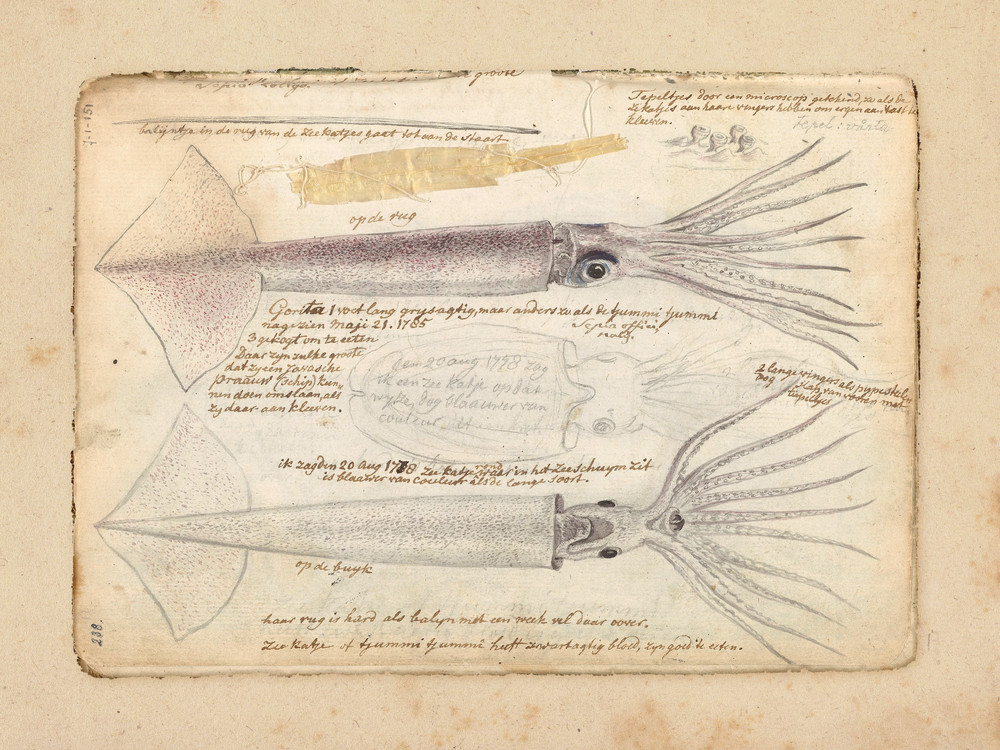 groote
Tepeltjes door een microscop getekend, zo als de
Zekatjes aan haare vingers hebben om ergen aan vast te
kleeven.
Tepel: värta
balijntje in de rug van de zeekatjes gaat tot aan de staart
f-1-151
op de rug
Gorita 1 voet lang grysagtig, maar anders zo als de tjummi tjummi
nagezien maji 21. 1785
Sepia offici
nalis.
3 gekogt om te eeten
Daar zyn zulke groote
dat zy een Javasche
praauw (schip) kun,,
nen doen omslaan, als
zy daar aan kleeven.
den 20 aug 1778 zag
ik een zee katje op dat
wyze, dog blaauwer van
couleur
2 lange vingers als pypestelen
dog van vooren met
tepeltjes
ik zag den 20 Aug 1778 zee katje waar in het zeeschuym zit
is blaauwer van couleur als de lange soort.
op de buyk
haar rug is hard als balyn met een week vel daar over.
Zee katje of tjummi tjummi heeft zwartagtig bloed, zyn goed te eeten.
238.